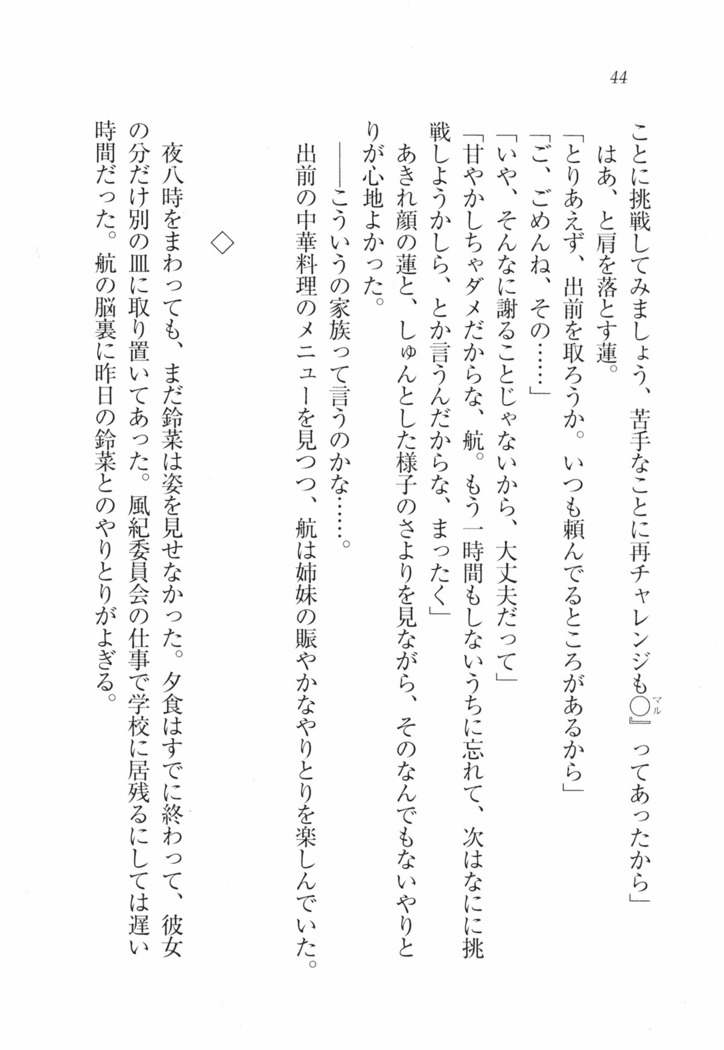 44
ことに挑戦してみましょう、苦手なことに再チャレンジも◯』ってあったから」
マル
はあ、と肩を落とす蓮。
「とりあえず、出前を取ろうか。いつも頼んでるところがあるから」
「ご、ごめんね、その……」
「いや、そんなに謝ることじゃないから、大丈夫だって」
「甘やかしちゃダメだからな、航。もう一時間もしないうちに忘れて、次はなにに挑
戦しようかしら、とか言うんだからな、まったく」
あきれ顔の蓮と、しゅんとした様子のさよりを見ながら、そのなんでもないやりと
りが心地よかった。
――こういうの家族って言うのかな……。
出前の中華料理のメニューを見つつ、航は姉妹の賑やかなやりとりを楽しんでいた。
◇
夜八時をまわっても、まだ鈴菜は姿を見せなかった。夕食はすでに終わって、彼女
の分だけ別の皿に取り置いてあった。風紀委員会の仕事で学校に居残るにしては遅い
時間だった。航の脳裏に昨日の鈴菜とのやりとりがよぎる。